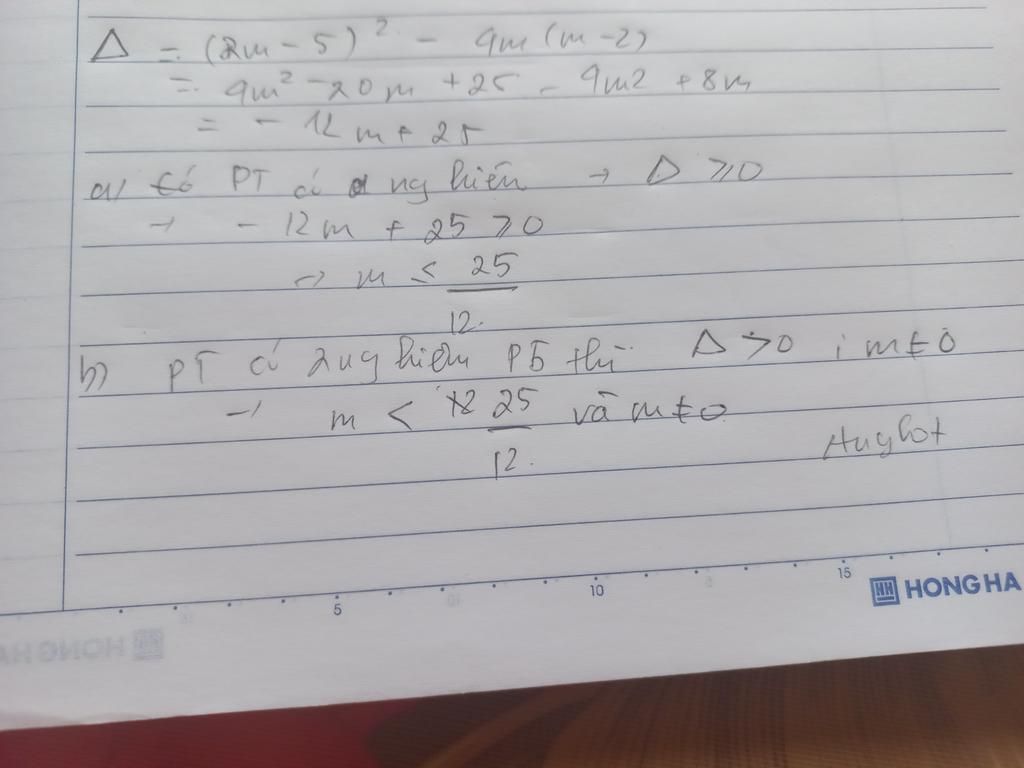 Δ = (2m - 5)² - 4m(m-2)
= 4m² - 20m + 25 - 4m2 + 8m
= - 12m + 25
a) Có PT có nghiện → Δ ≥ 0
→ - 12m + 25 ≥ 0
→ m ≤ 25/12.
b) PT có 2 nghiệm PB thì Δ > 0 ; m ≠ 0
→ m < 25/12. và m ≠ 0
5 10 15
HONG HA